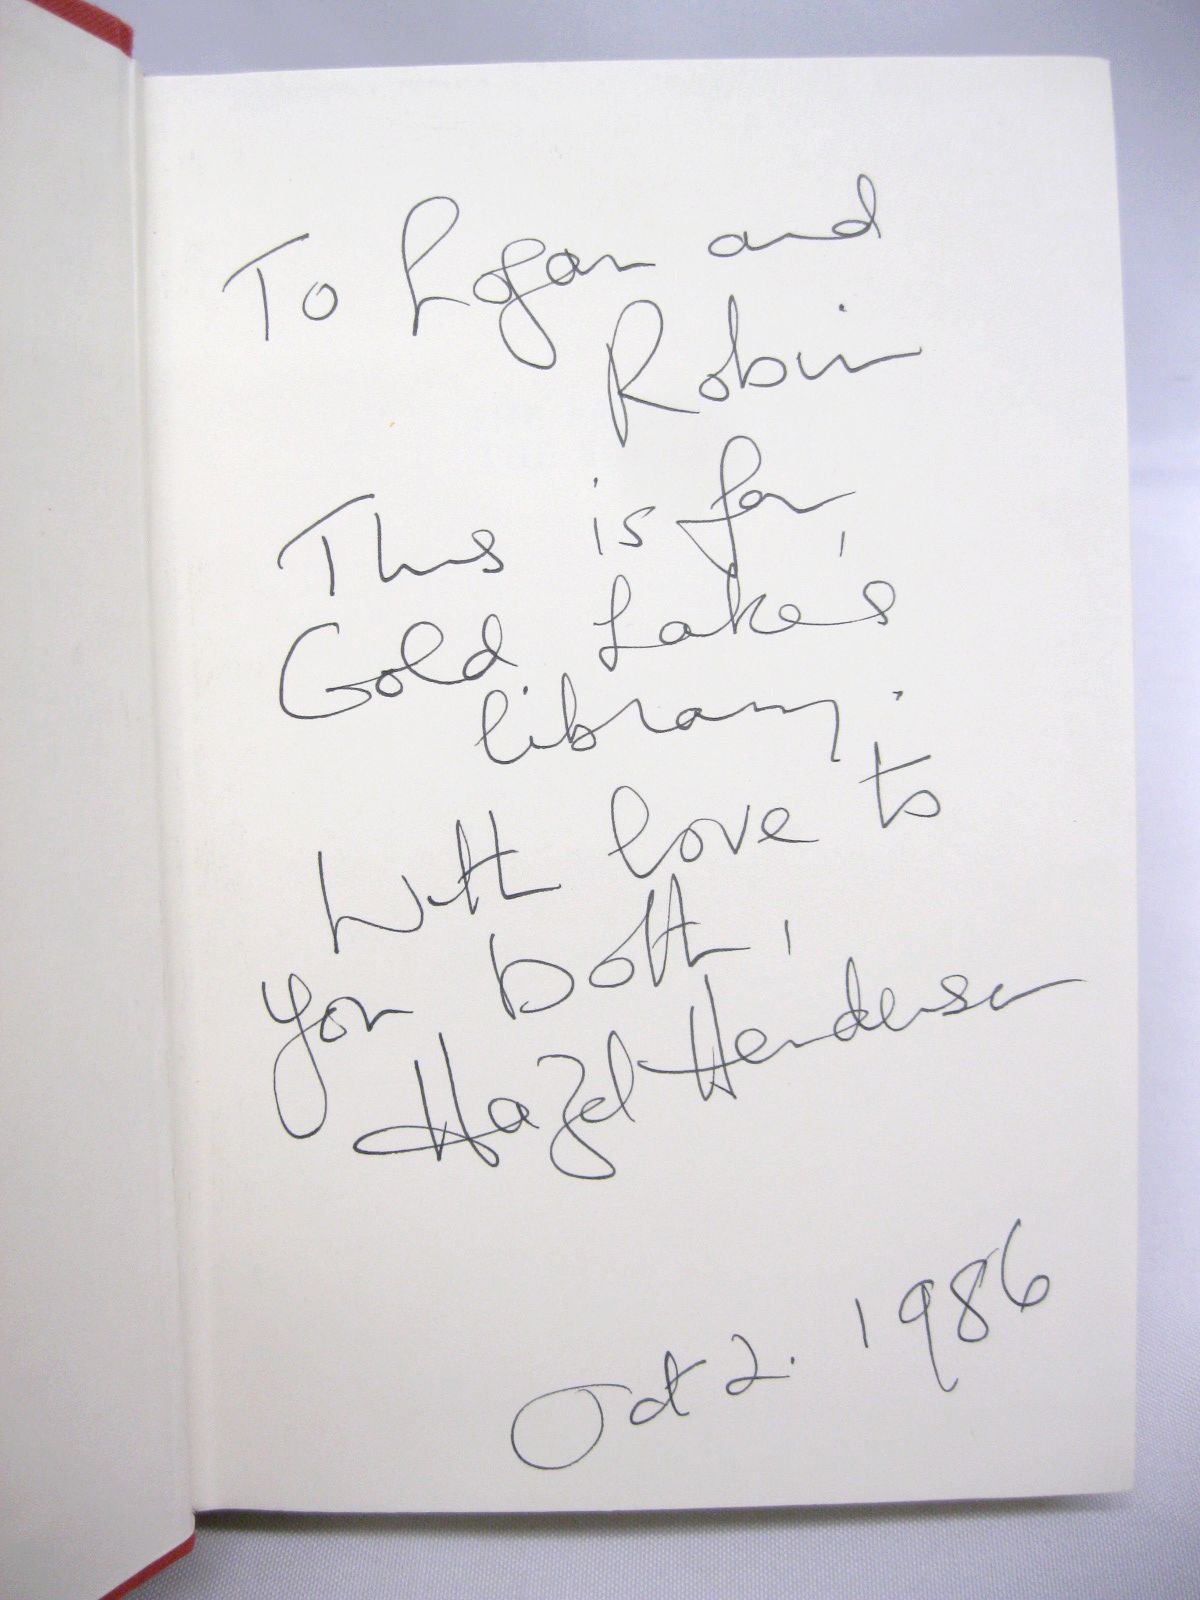 To Logan and
Robin
This is for
Gold Lake's
library.
With love to
you both,
Hazel Henderson
Oct 2. 1986